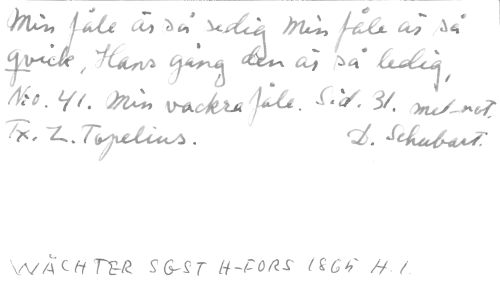 Min fåle är så sedig Min fåle är så
qvick, Hans gång den är så ledig,
N:o. 41. Min vackra fåle. Sid. 31. mel-not.
Tx. Z. Topelius. D. Schubart.
WÄCHTER SGST H-FORS 1865 H.1.